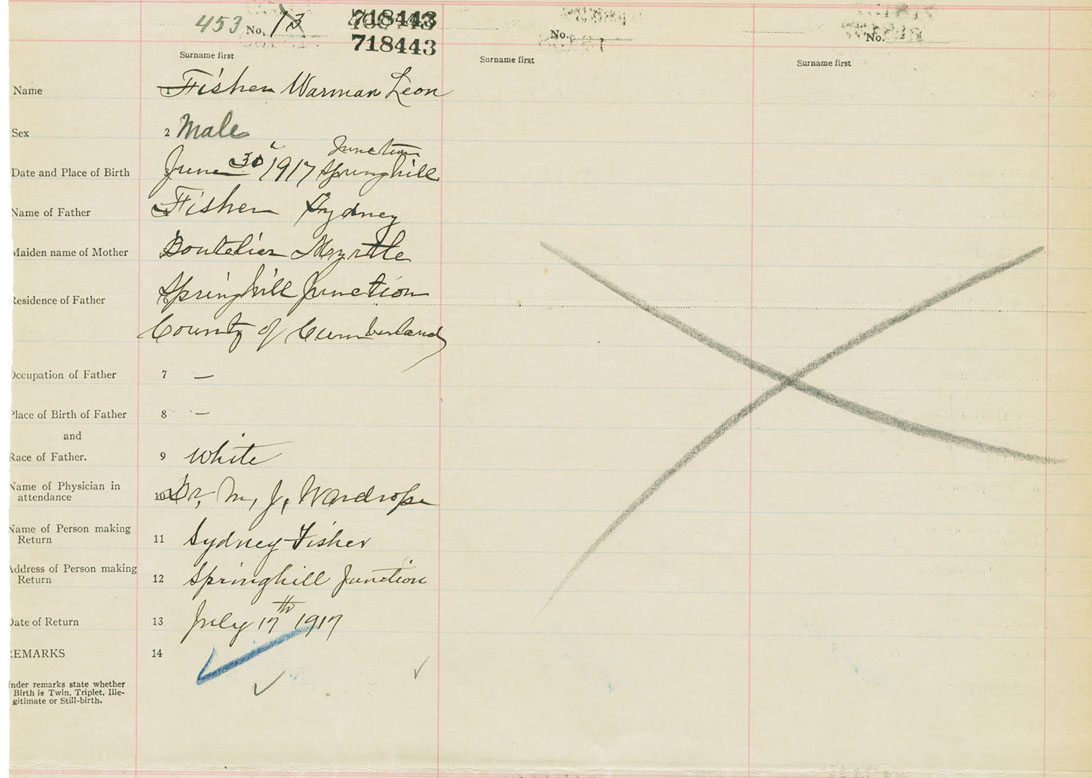 453 No. 13 718443
718443
No.
No.
Surname first
Surname first
Surname first
Name 1 Fisher Warman Leon
Sex 2 Male
Junction
Date and Place of Birth June 30 1917 Springhill
Name of Father Fisher Sydney
Maiden name of Mother Boutelier Myrtle
Residence of Father Springhill Junction
County of Cumberland
Occupation of Father 7 —
Place of Birth of Father 8 —
and
Race of Father. 9 White
Name of Physician in attendance 10 Dr. M. J. Wardrope
Name of Person making Return 11 Sydney Fisher
Address of Person making Return 12 Springhill Junction
Date of Return 13 July 17th 1917
REMARKS 14
Under remarks state whether
Birth is Twin, Triplet, Ille-
gitimate or Still-birth.